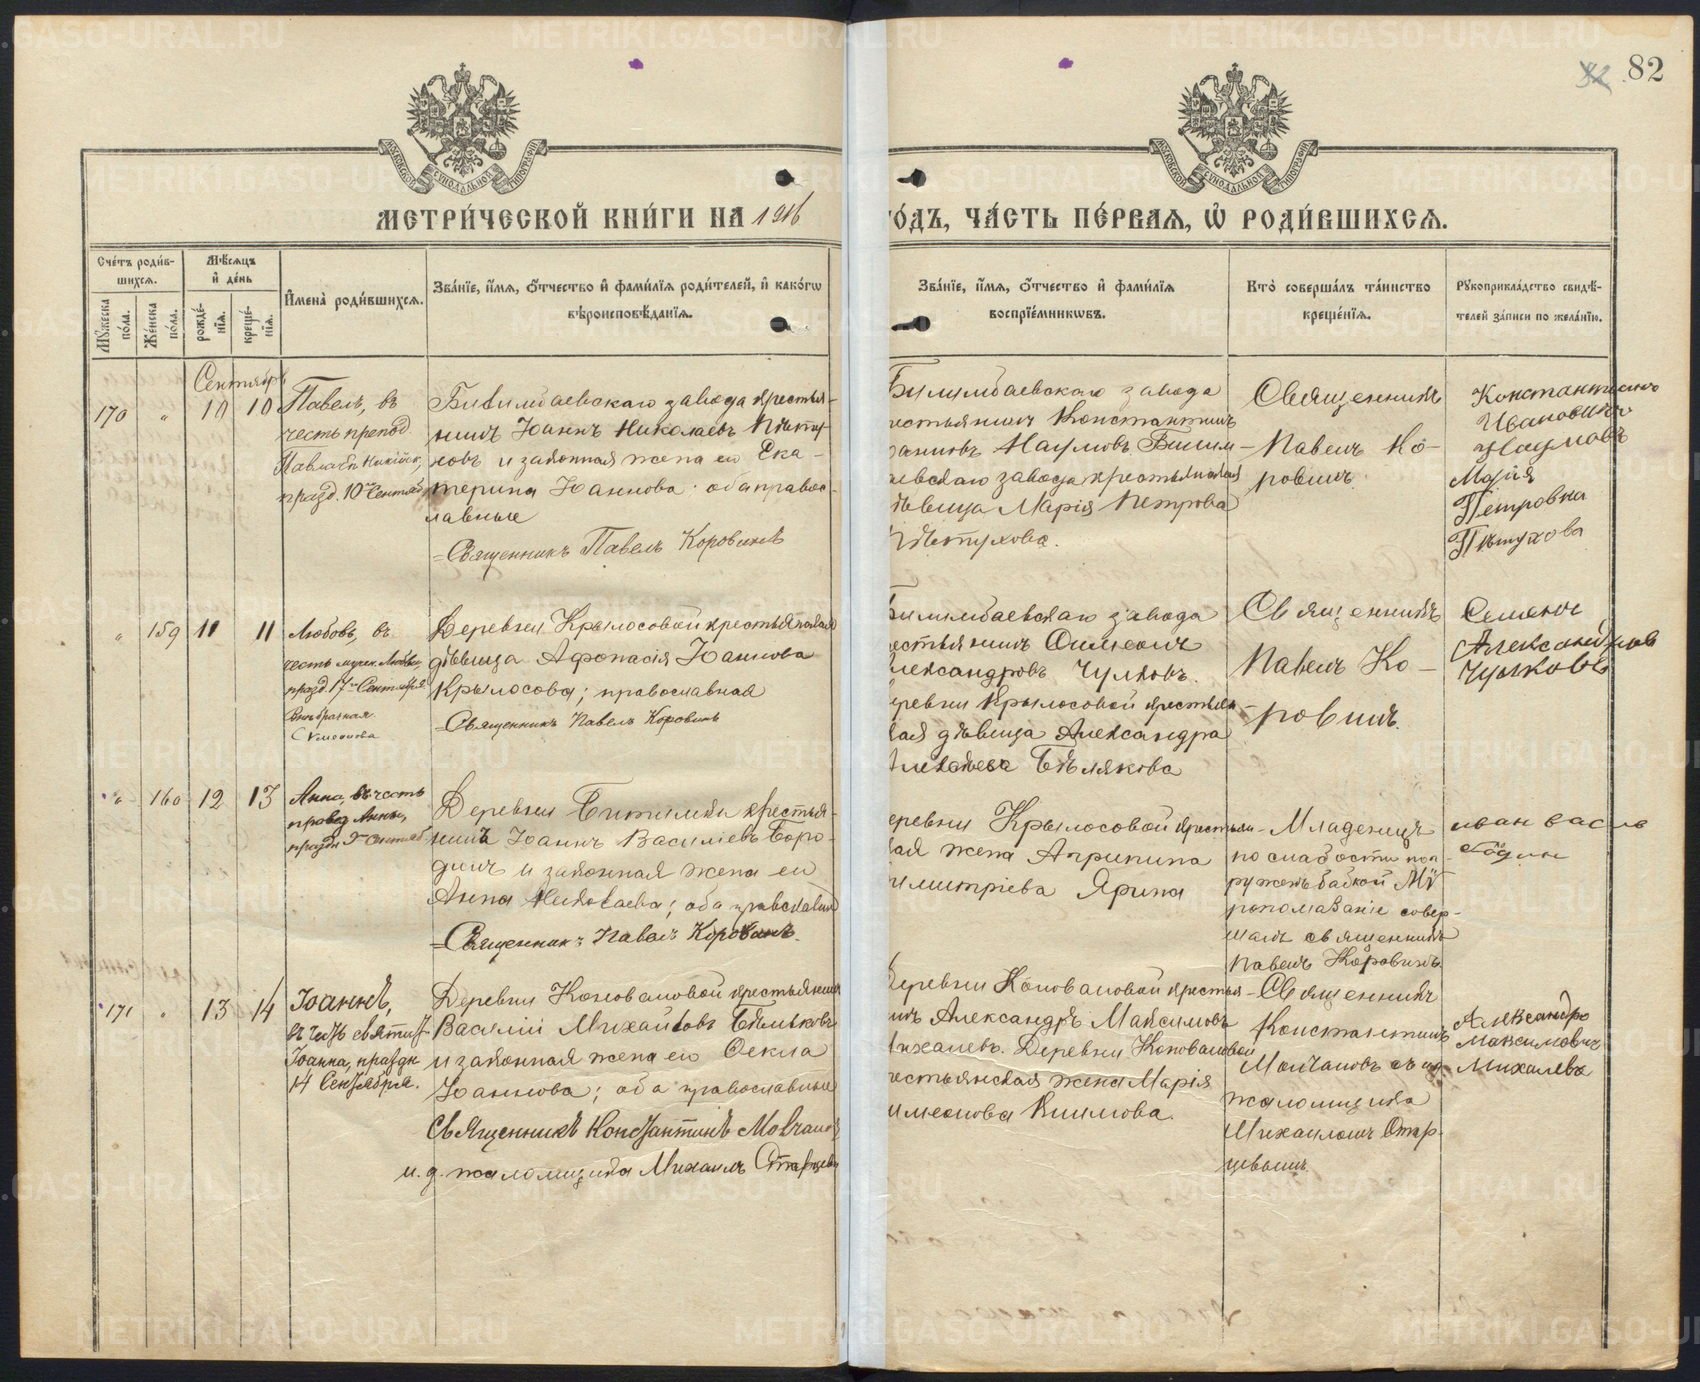 82
МОСКОВСКОЙ СѴНОДАЛЬНОЙ ТИПОГРАФІИ
МОСКОВСКОЙ СѴНОДАЛЬНОЙ ТИПОГРАФІИ
МЕТРИ́ЧЕСКОЙ КНИ́ГИ НА 1916
ГО́ДЪ, ЧА́СТЬ ПЕ́РВАЯ, Ѡ РОДИ́ВШИХСЯ.
Сче́тъ роди́в-
шихся.
Му́жеска
по́ла.
Же́нска
по́ла.
Мѣ́сяцъ
и де́нь
рожде́-
нїя.
креще́-
нїя.
Имена̀ роди́вшихся.
Зва́нїе, и́мя, о́тчество и фами́лїя роди́телей, и како́гѡ
вѣроисповѣ́данїя.
Зва́нїе, и́мя, о́тчество и фами́лїя
воспрїе́мникѡвъ.
Кто̀ соверша́лъ та́инство
креще́нїя.
Рꙋкоприкла́дство свидѣ́-
телей за́писи по жела́нїю.
Сентябрь
170 " 10 10
Павелъ, въ
честь препод.
празд. 10го Сентяб.
Билимбаевскаго завода крестья-
нинъ Іоаннъ Николаевъ Пѣту-
ховъ и законная жена его Ека-
терина Іоаннова; оба правос-
лавные
Священникъ Павелъ Коровинъ
Билимбаевскаго завода
крестьянинъ Константинъ
Іоанновъ Наумовъ. Билим-
баевскаго завода крестьянская
дѣвица Марія Петрова
Пѣтухова.
Священникъ
Павелъ Ко-
ровинъ
Константинъ
Ивановичъ
Наумовъ
Марія
Петровна
Пѣтухова
" 159 11 11
Любовь, въ
честь мучен. Любви,
празд. 17го Сентября
Внѣбрачная
Симеонова
Деревни Крылосовой крестьянская
дѣвица Афонасія Іоаннова
Крылосова; православная
Священникъ Павелъ Коровинъ
Билимбаевскаго завода
крестьянинъ Симеонъ
Александровъ Чулковъ.
Деревни Крылосовой крестьян-
ская дѣвица Александра
Алексѣева Бѣлякова
Священникъ
Павелъ Ко-
ровинъ.
Семенъ
Александровъ
Чулковъ
" 160 12 13
Анна, въ честь
правед. Анны,
празд. 9го Сентяб.
Деревни Битимки крестья-
нинъ Іоаннъ Василіевъ Боро-
динъ и законная жена его
Анна Николаева; оба православные
Священникъ Павелъ Коровинъ.
Деревни Крылосовой крестьян-
ская жена Агрипина
Димитріева Ярина
Младенецъ
по слабости пог-
руженъ бабкой. Мѵ-
ропомазаніе совер-
шалъ священникъ
Павелъ Коровинъ.
иван васил
171 " 13 14
Іоаннъ,
въ честь святит.
Іоанна, праздн.
14 Сентября.
Деревни Коноваловой крестьянинъ
Василій Михайловъ Бѣльковъ
и законная жена его Ѳекла
Іоаннова; оба православные
Священникъ Константинъ Молчановъ
и. д. псаломщика Михаилъ Старцевъ
Деревни Коноваловой крестья-
нинъ Александръ Максимовъ
Михалевъ. Деревни Коноваловой
крестьянская жена Марія
Симеонова
Священникъ
Константинъ
Молчановъ съ и.д.
псаломщика
Михаиломъ Стар-
цевымъ.
Александръ
Максимовичъ
Михалевъ